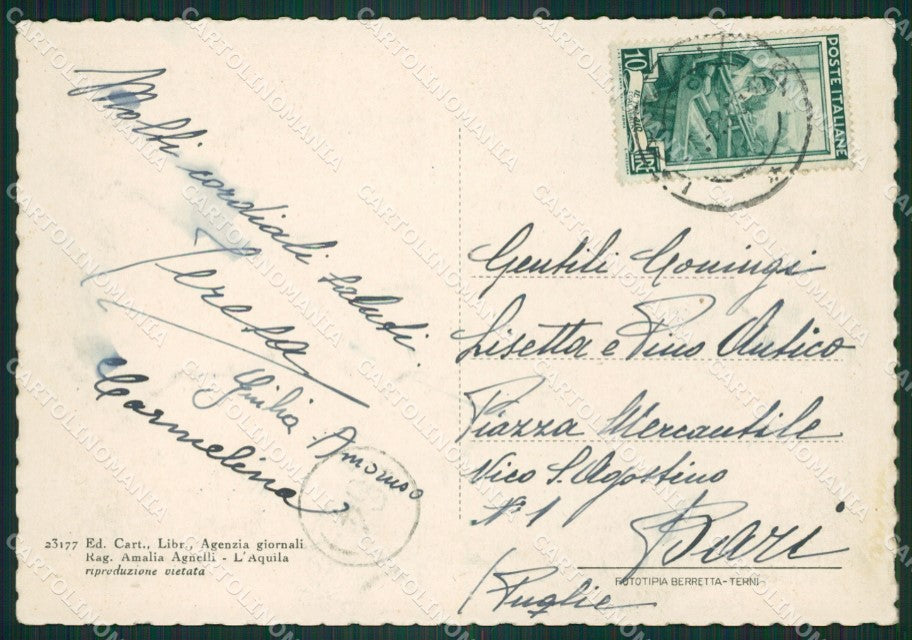 Molti cordiali saluti.
Teresa
Giulia Amoruso
Carmelina
23177 Ed. Cart., Libr., Agenzia giornali
Rag. Amalia Agnelli - L'Aquila
riproduzione vietata
POSTE ITALIANE
10
LIRE
Gentili Coniugi
Lisetta e Pino Antico
Piazza Mercantile
Vico S. Agostino
N° 1
Bari
(Puglie
FOTOTIPIA BERRETTA-TERNI
CARTOLINOMANIA